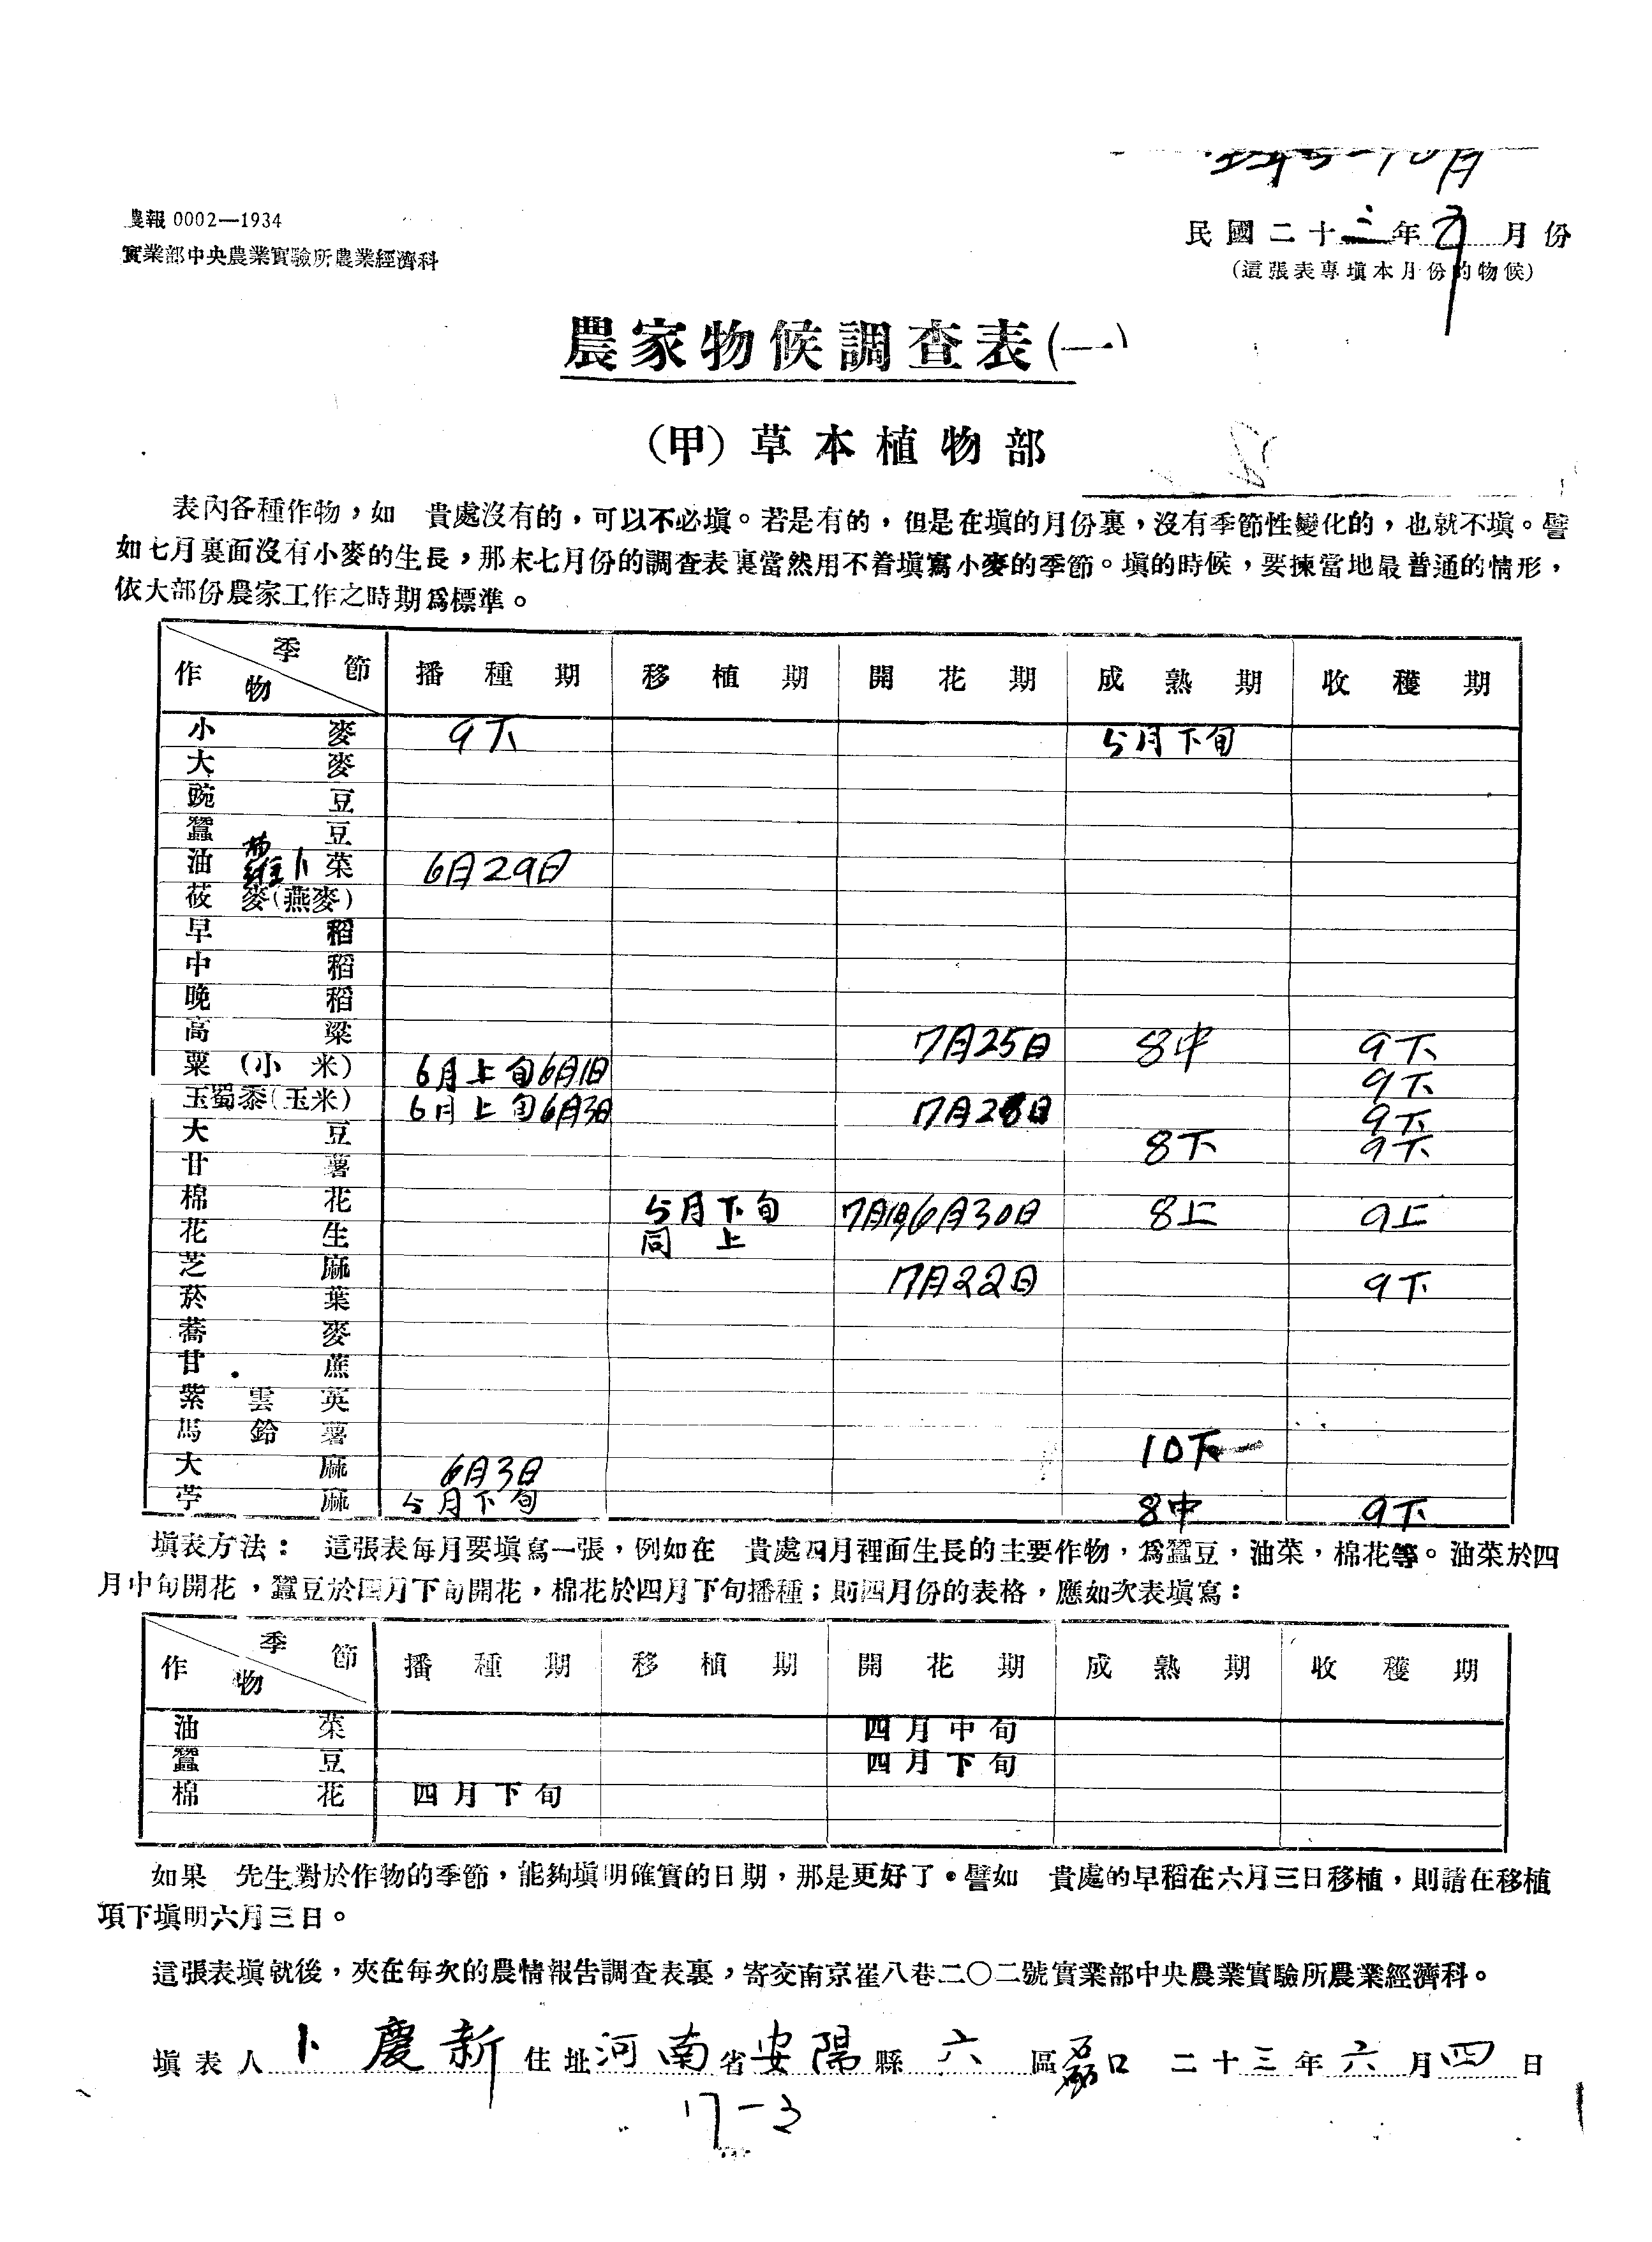 農報 0002—1934
實業部中央農業實驗所農業經濟科
民國二十三年 月份
(這張表專填本月份的物候)
農家物候調查表(一)
(甲) 草本植物部
表內各種作物，如 貴處沒有的，可以不必填。若是有的，但是在填的月份裏，沒有季節性變化的，也就不填。譬
如七月裏面沒有小麥的生長，那末七月份的調查表裏當然用不着填寫小麥的季節。填的時候，要揀當地最普通的情形，
依大部份農家工作之時期爲標準。
作物 季節 播種期 移植期 開花期 成熟期 收穫期
小麥 9下 5月下旬
大麥
豌豆
蠶豆
油菜 6月29日
莜麥(燕麥)
早稻
中稻
晚稻
高粱 7月25日 8中 9下
粟(小米) 6月上旬6月1日 9下
玉蜀黍(玉米) 6月上旬6月3日 7月28日 9下
大豆 8下 9下
甘薯
棉花 5月下旬 7月1日6月30日 8上 9上
花生 同上
芝麻 7月22日 9下
菸葉
蕎麥
甘蔗
紫雲英
馬鈴薯 10下
大麻 6月3日
苧麻 5月下旬 8中 9下
填表方法： 這張表每月要填寫一張，例如在 貴處四月裡面生長的主要作物，爲蠶豆，油菜，棉花等。油菜於四
月中旬開花，蠶豆於四月下旬開花，棉花於四月下旬播種；則四月份的表格，應如次表填寫：
作物 季節 播種期 移植期 開花期 成熟期 收穫期
油菜 四月中旬
蠶豆 四月下旬
棉花 四月下旬
如果 先生對於作物的季節，能夠填明確實的日期，那是更好了。譬如 貴處的早稻在六月三日移植，則請在移植
項下填明六月三日。
這張表填就後，夾在每次的農情報告調查表裏，寄交南京崔八巷二〇二號實業部中央農業實驗所農業經濟科。
填表人 卜慶新 住址 河南省安陽縣六區磊口 二十三年六月四日
17-3